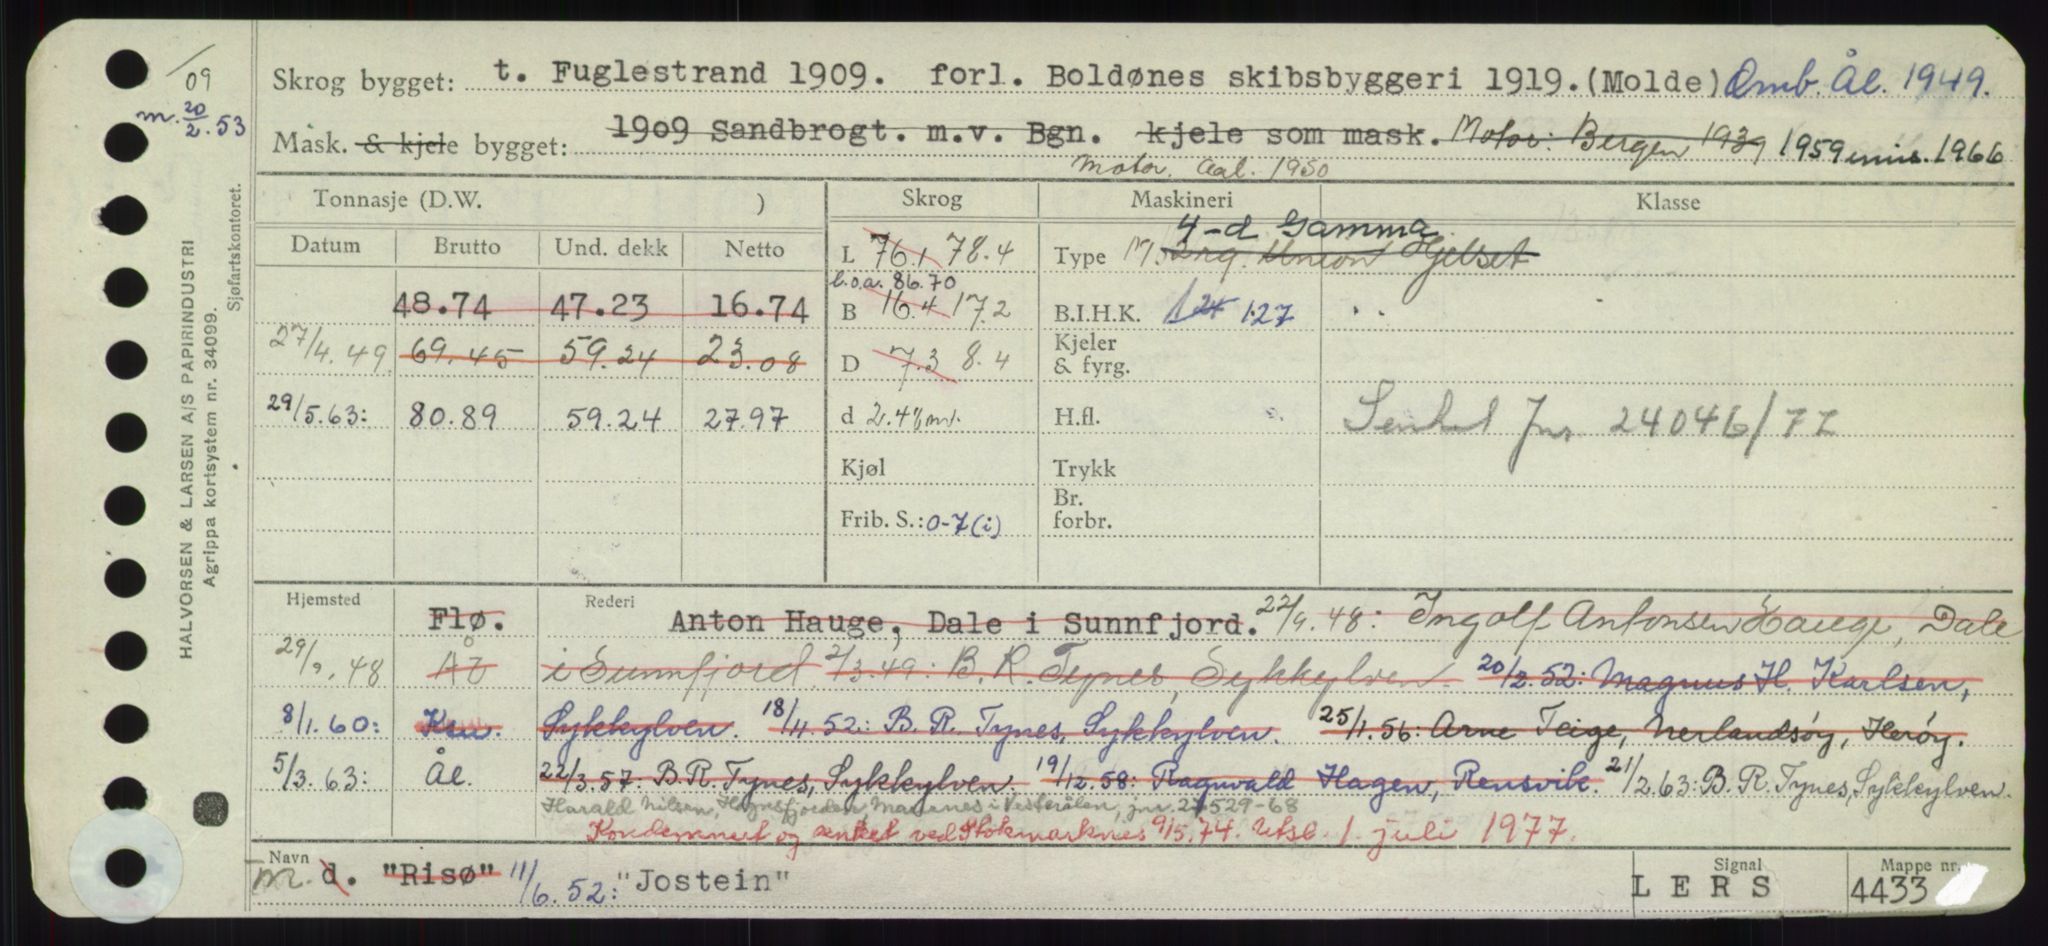 /09
m. 20/2.53
Skrog bygget: t. Fuglestrand 1909. forl. Boldønes skibsbyggeri 1919.(Molde) Omb. Ål. 1949.
Mask. & kjele bygget: 1909 Sandbrogt. m.v. Bgn. kjele som mask. Motor: Bergen 1939 1959 inns. 1966
Motor. Aal. 1950
Tonnasje (D.W. ) Skrog Maskineri Klasse
Datum Brutto Und. dekk Netto L 76.1 78.4 Type 4-d Gamma Union Hjelset
l.o.a. 86.70
48.74 47.23 16.74 B 16.4 17.2 B.I.H.K. 124 127
27/4.49. 69.45 59.24 23.08 D 7.3 8.4 Kjeler & fyrg.
29/5.63: 80.89 59.24 27.97 d 2.48 m. H.fl. Senket Jnr 24046/77
Kjøl Trykk
Frib. S.: 0-7 (i) Br. forbr.
Hjemsted Flø. Rederi Anton Hauge, Dale i Sunnfjord. 22/9.48: Ingolf Antonsen Hauge, Dale
29/9.48 Ål i Sunnfjord 2/3.49: B. R. Tynes, Sykkylven. 20/2.52: Magnus H. Karlsen,
8/1.60: Ksu. Sykkylven. 18/4.52: B. R. Tynes, Sykkylven. 25/1.56: Arne Teige, Nerlandsøy, Herøy.
5/3.63: Ål. 22/3.57: B.R. Tynes, Sykkylven. 19/12.58: Ragnvald Hagen, Rensvik. 21/2.63: B. R. Tynes, Sykkylven.
Harald Nilsen, Høgnfjorden Maurnes i Vesterålen, jnr. 27529-68
Kondemnert og senket ved Stokmarknes 9/5.74. Utsl. 1. juli 1977.
Navn m. d. "Risø" 11/6.52: "Jostein" Signal LERS Mappe nr. 4433
HALVORSEN & LARSEN A/S PAPIRINDUSTRI
Agrippa kortsystem nr. 34099.
Sjøfartskontoret.